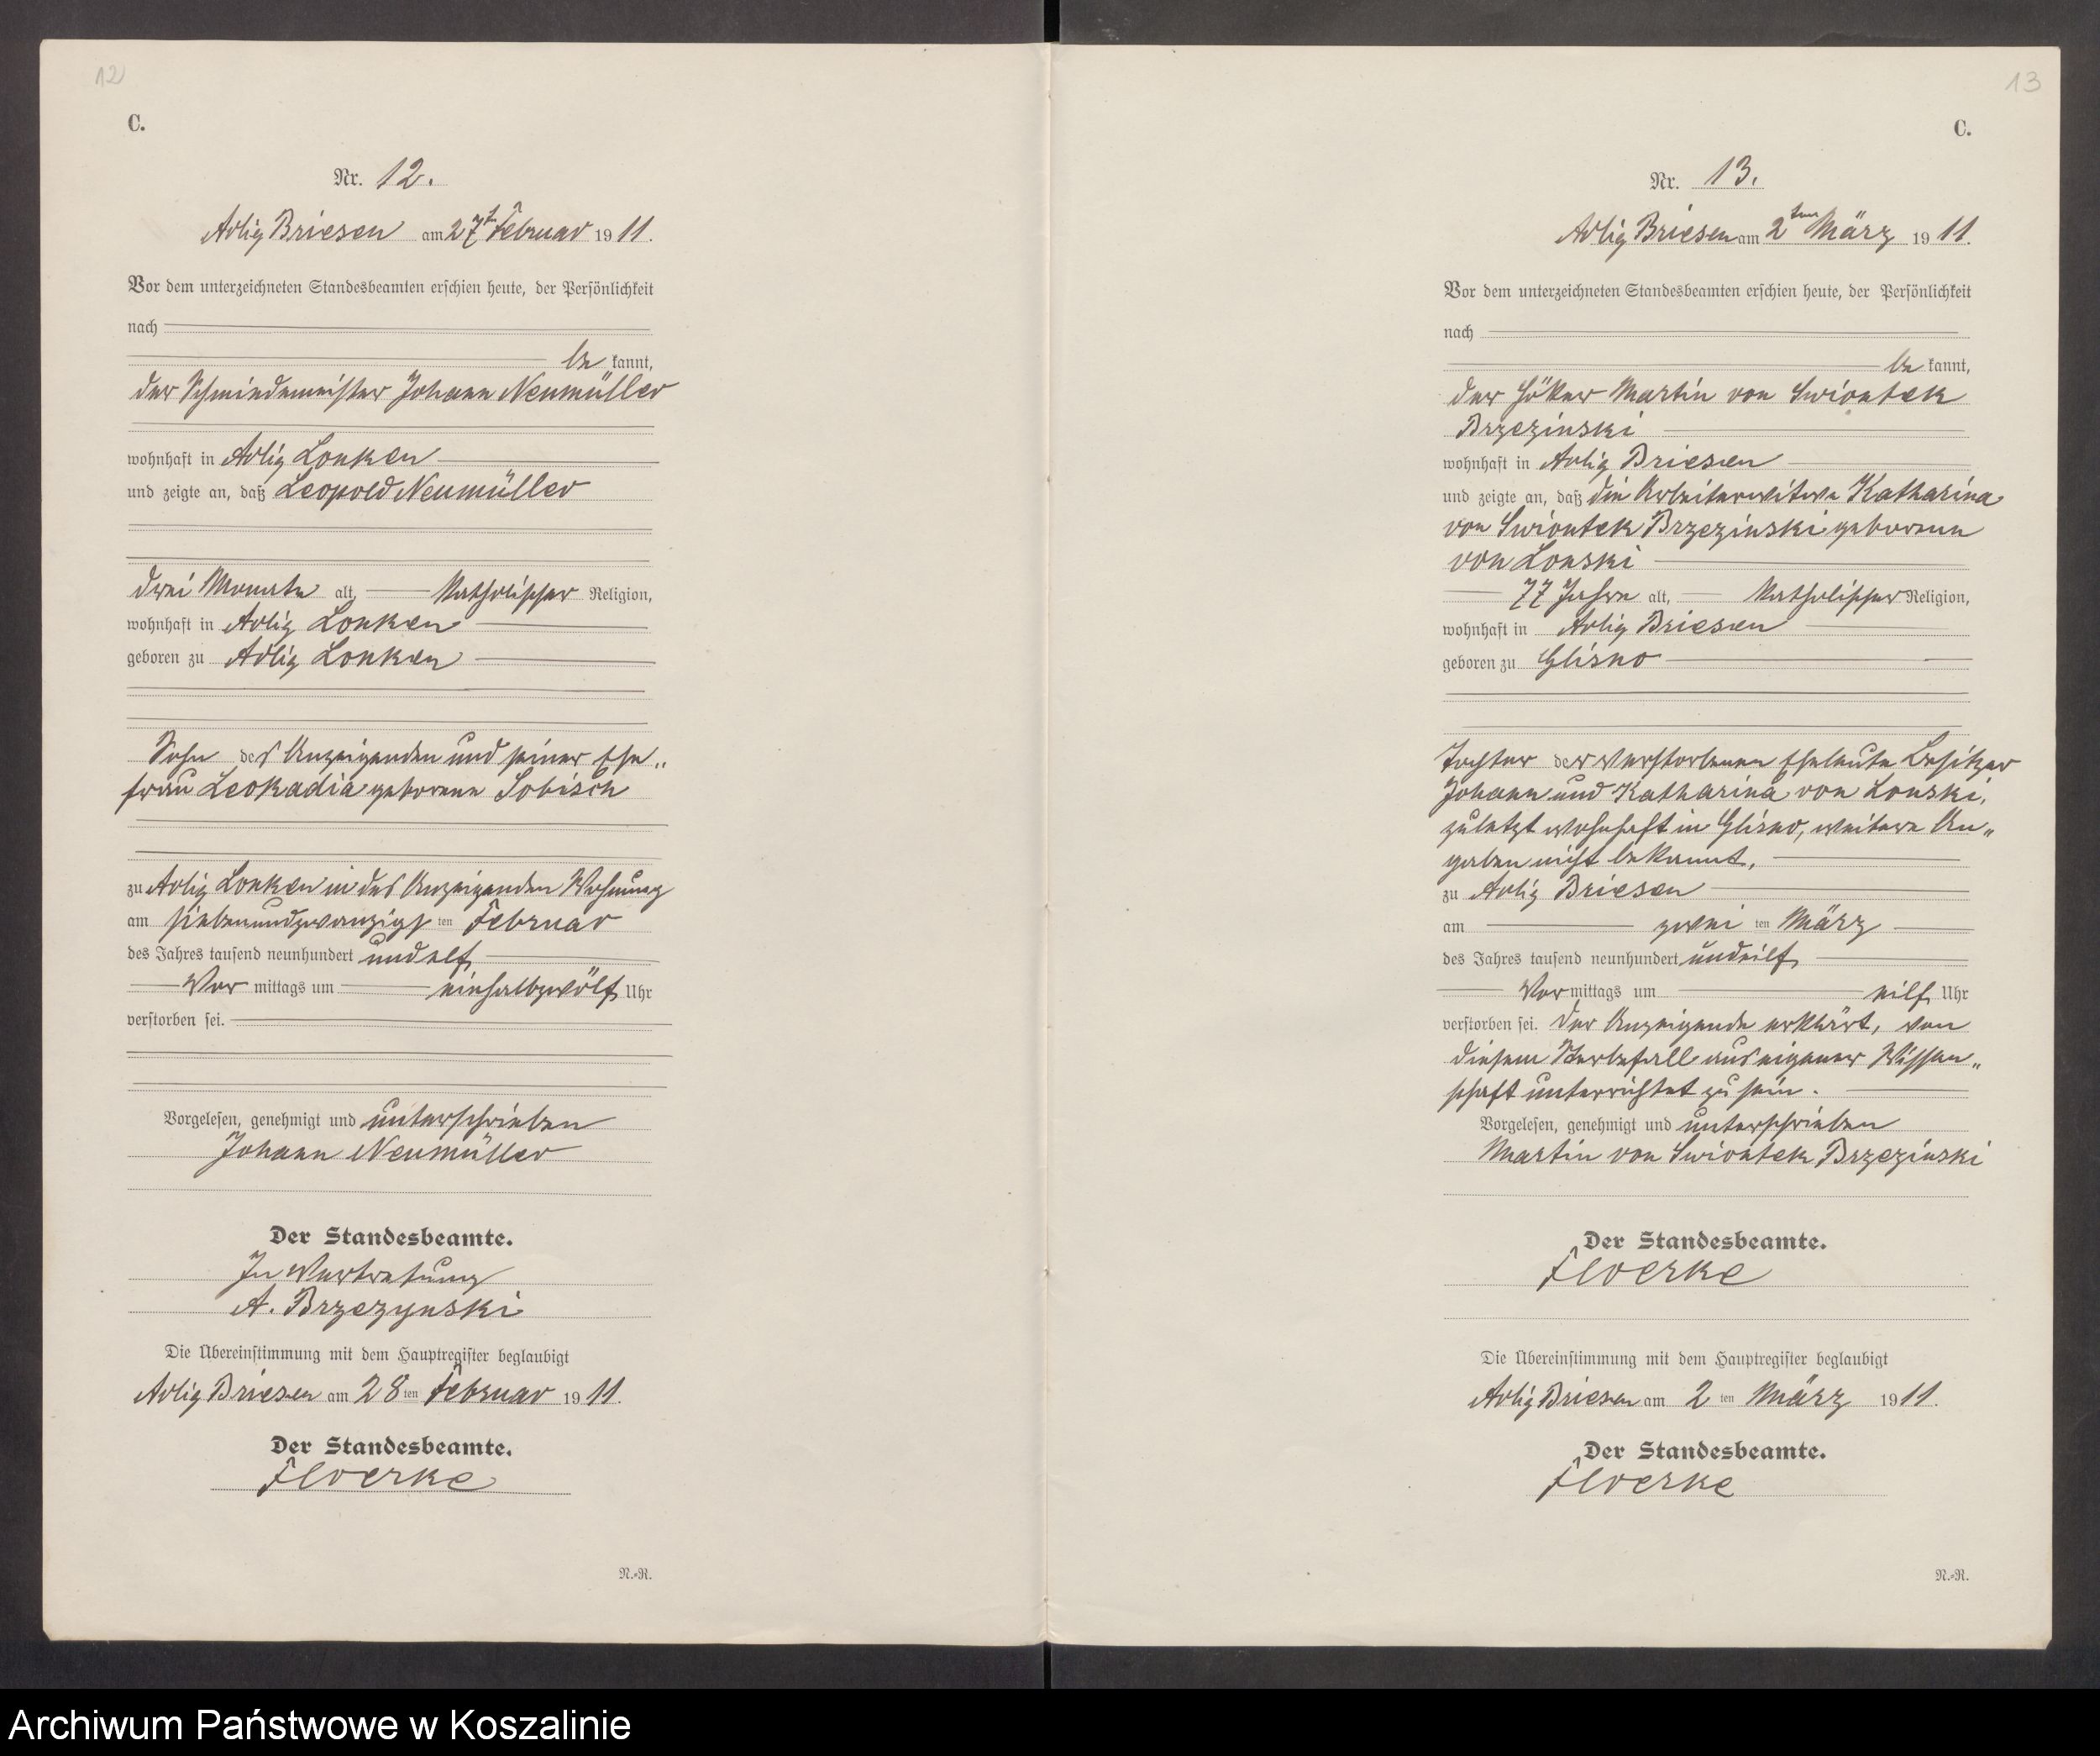 12
C.
Nr. 12.
Adlig Briesen am 27ten Februar 1911.
Vor dem unterzeichneten Standesbeamten erschien heute, der Persönlichkeit
nach
be kannt,
der Schmiedemeister Johann Neumüller
wohnhaft in Adlig Lonken
und zeigte an, daß Leopold Neumüller
drei Monate alt, Katholischer Religion,
wohnhaft in Adlig Lonken
geboren zu Adlig Lonken
Sohn des Anzeigenden und seiner Ehe„
frau Leokadia geborene Sobisch
zu Adlig Lonken in des Anzeigenden Wohnung
am siebenundzwanzigsten Februar
des Jahres tausend neunhundert und elf
Vor mittags um einhalbzwölf Uhr
verstorben sei.
Vorgelesen, genehmigt und unterschrieben
Johann Neumüller
Der Standesbeamte.
In Vertretung
A. Brzezynski
Die Übereinstimmung mit dem Hauptregister beglaubigt
Adlig Briesen am 28 ten Februar 1911.
Der Standesbeamte.
Floerke
N.-R.
13
C.
Nr. 13.
Adlig Briesen am 2ten März 1911.
Vor dem unterzeichneten Standesbeamten erschien heute, der Persönlichkeit
nach
be kannt,
der Höker Martin von Swiontek
Brzezinski
wohnhaft in Adlig Briesen
und zeigte an, daß die Arbeiterwitwe Katharina
von Swiontek Brzezinski geborene
von Lonski
77 Jahre alt, Katholischer Religion,
wohnhaft in Adlig Briesen
geboren zu Glisno
Tochter der verstorbenen Eheleute Besitzer
Johann und Katharina von Lonski,
zuletzt wohnhaft in Glisno, weitere An„
gaben nicht bekannt,
zu Adlig Briesen
am zwei ten März
des Jahres tausend neunhundert und eilf
Vor mittags um eilf Uhr
verstorben sei. Der Anzeigende erklärt, von
diesem Sterbefall aus eigener Wissen„
schaft unterrichtet zu sein.
Vorgelesen, genehmigt und unterschrieben
Martin von Swiontek Brzezinski
Der Standesbeamte.
Floerke
Die Übereinstimmung mit dem Hauptregister beglaubigt
Adlig Briesen am 2 ten März 1911.
Der Standesbeamte.
Floerke
N.-R.
Archiwum Państwowe w Koszalinie